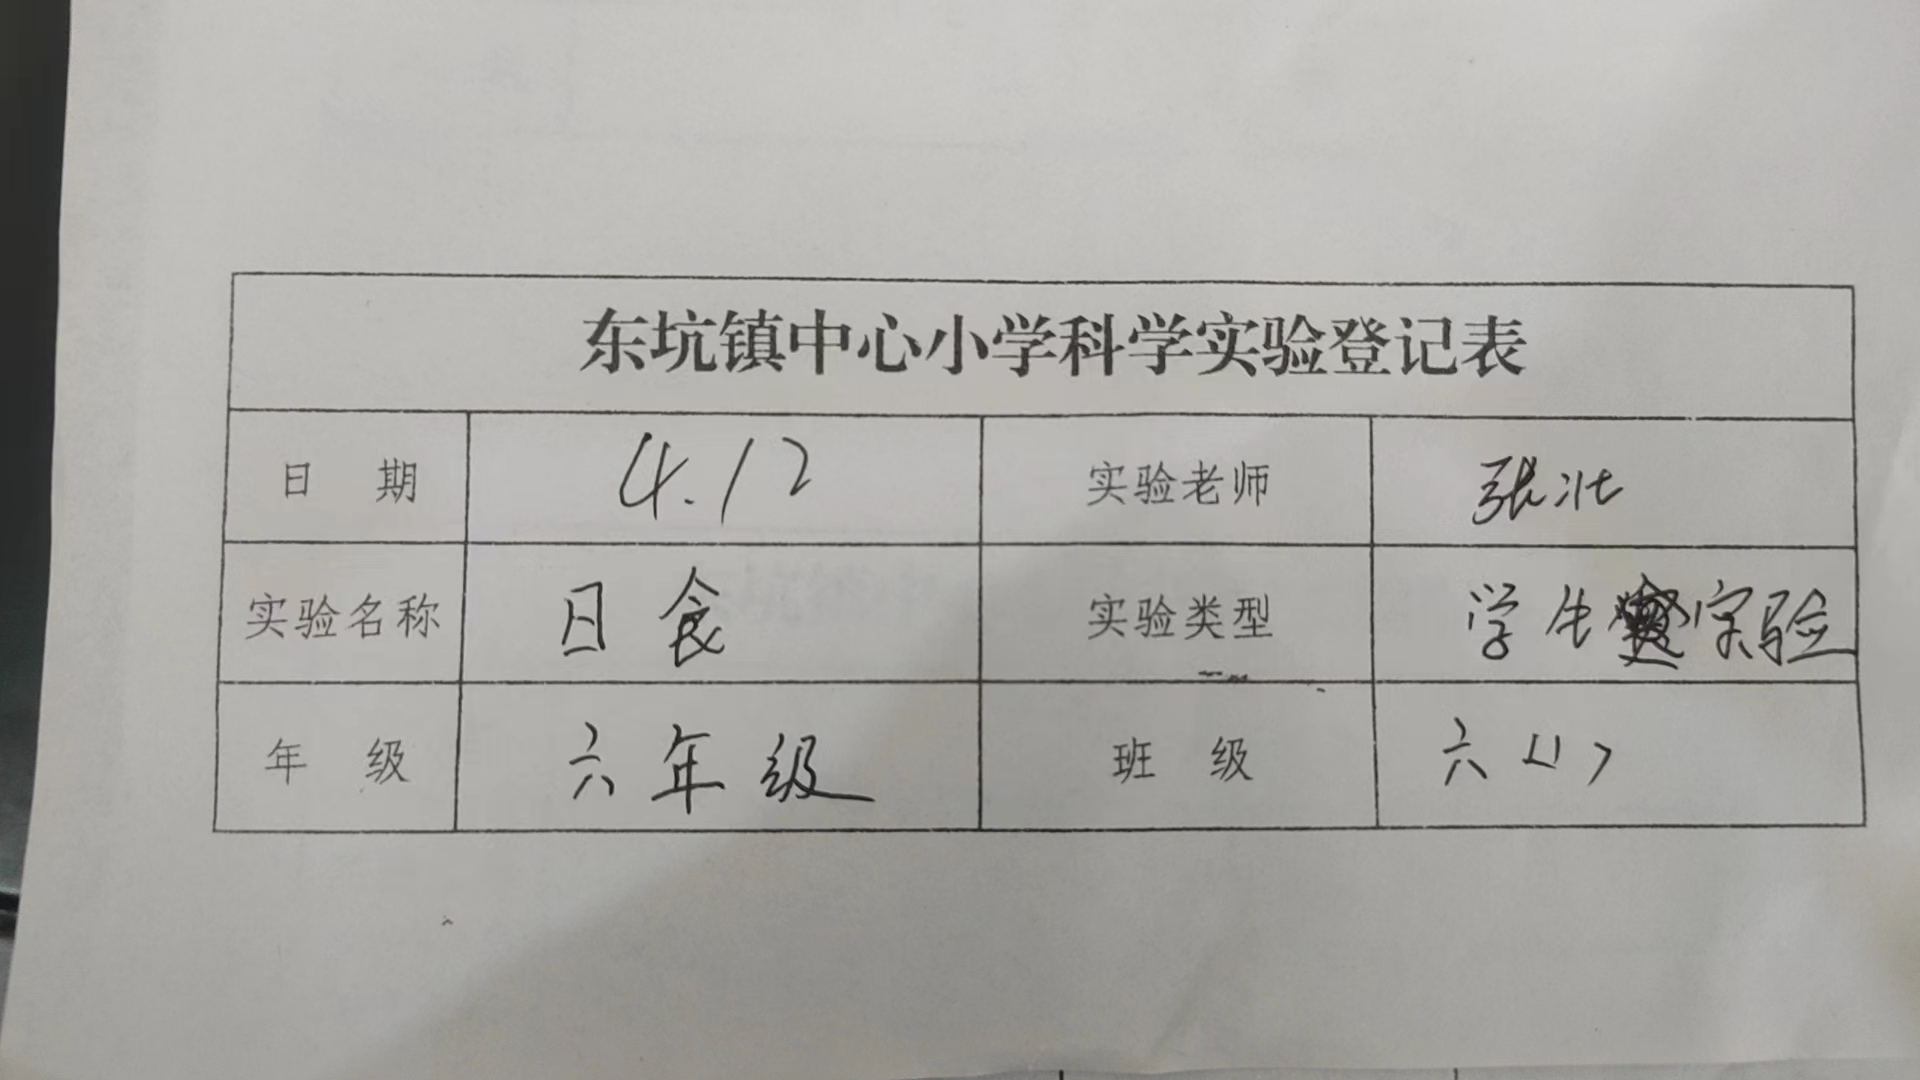 东坑镇中心小学科学实验登记表
日 期 4.12 实验老师 张壮
实验名称 日食 实验类型 学生实验
年 级 六年级 班 级 六(1)